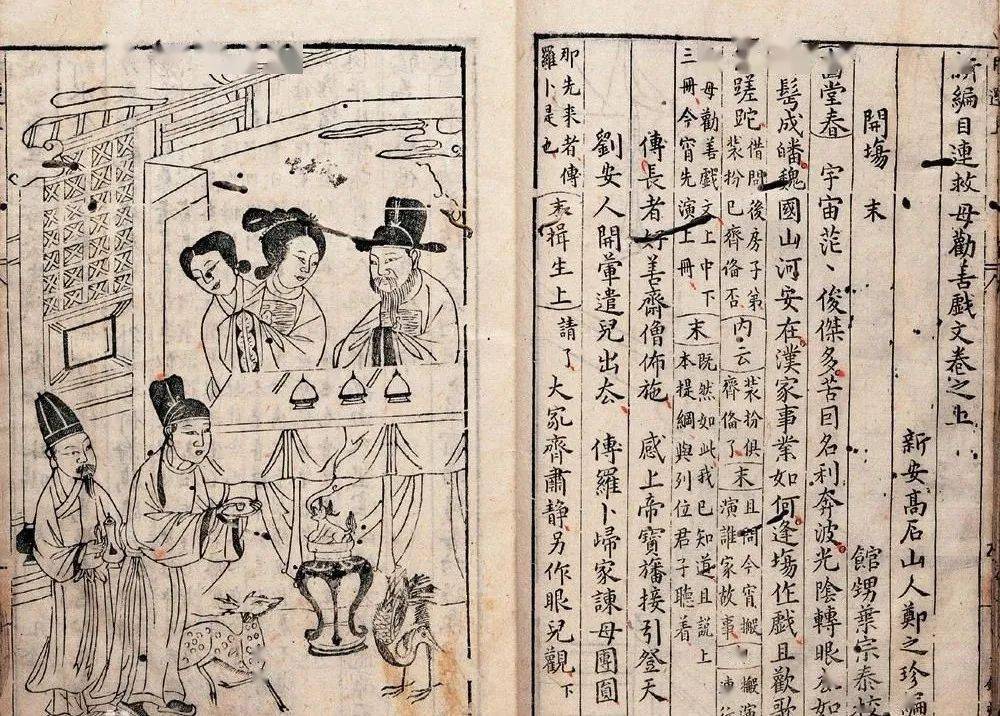 新編目連救母勸善戲文卷之上
新安高石山人鄭之珍編
館甥葉宗泰
開場 末
堂春 宇宙茫、俊傑多苦囙名利奔波光陰轉眼去如
髩成皤魏國山河安在漢家事業如何逢塲作戲且歡歌
蹉跎 借問後房子弟
裝扮已齊俻否
內云
裝扮俱
齊俻了
末
且問今宵搬
演誰家故事
搬演
母勸善戲文上中下
三冊今宵先演上冊
末
既然如此我已知道且説上
本提綱與列位君子聽着
傳長者好善齋僧佈施 感上帝寶旛接引登天
劉安人開葷遣兒出去 傳羅卜歸家諫母團圓
那先来者傳
羅卜是也
末揖生上 請了 大家齊肅静另作眼兒觀 下